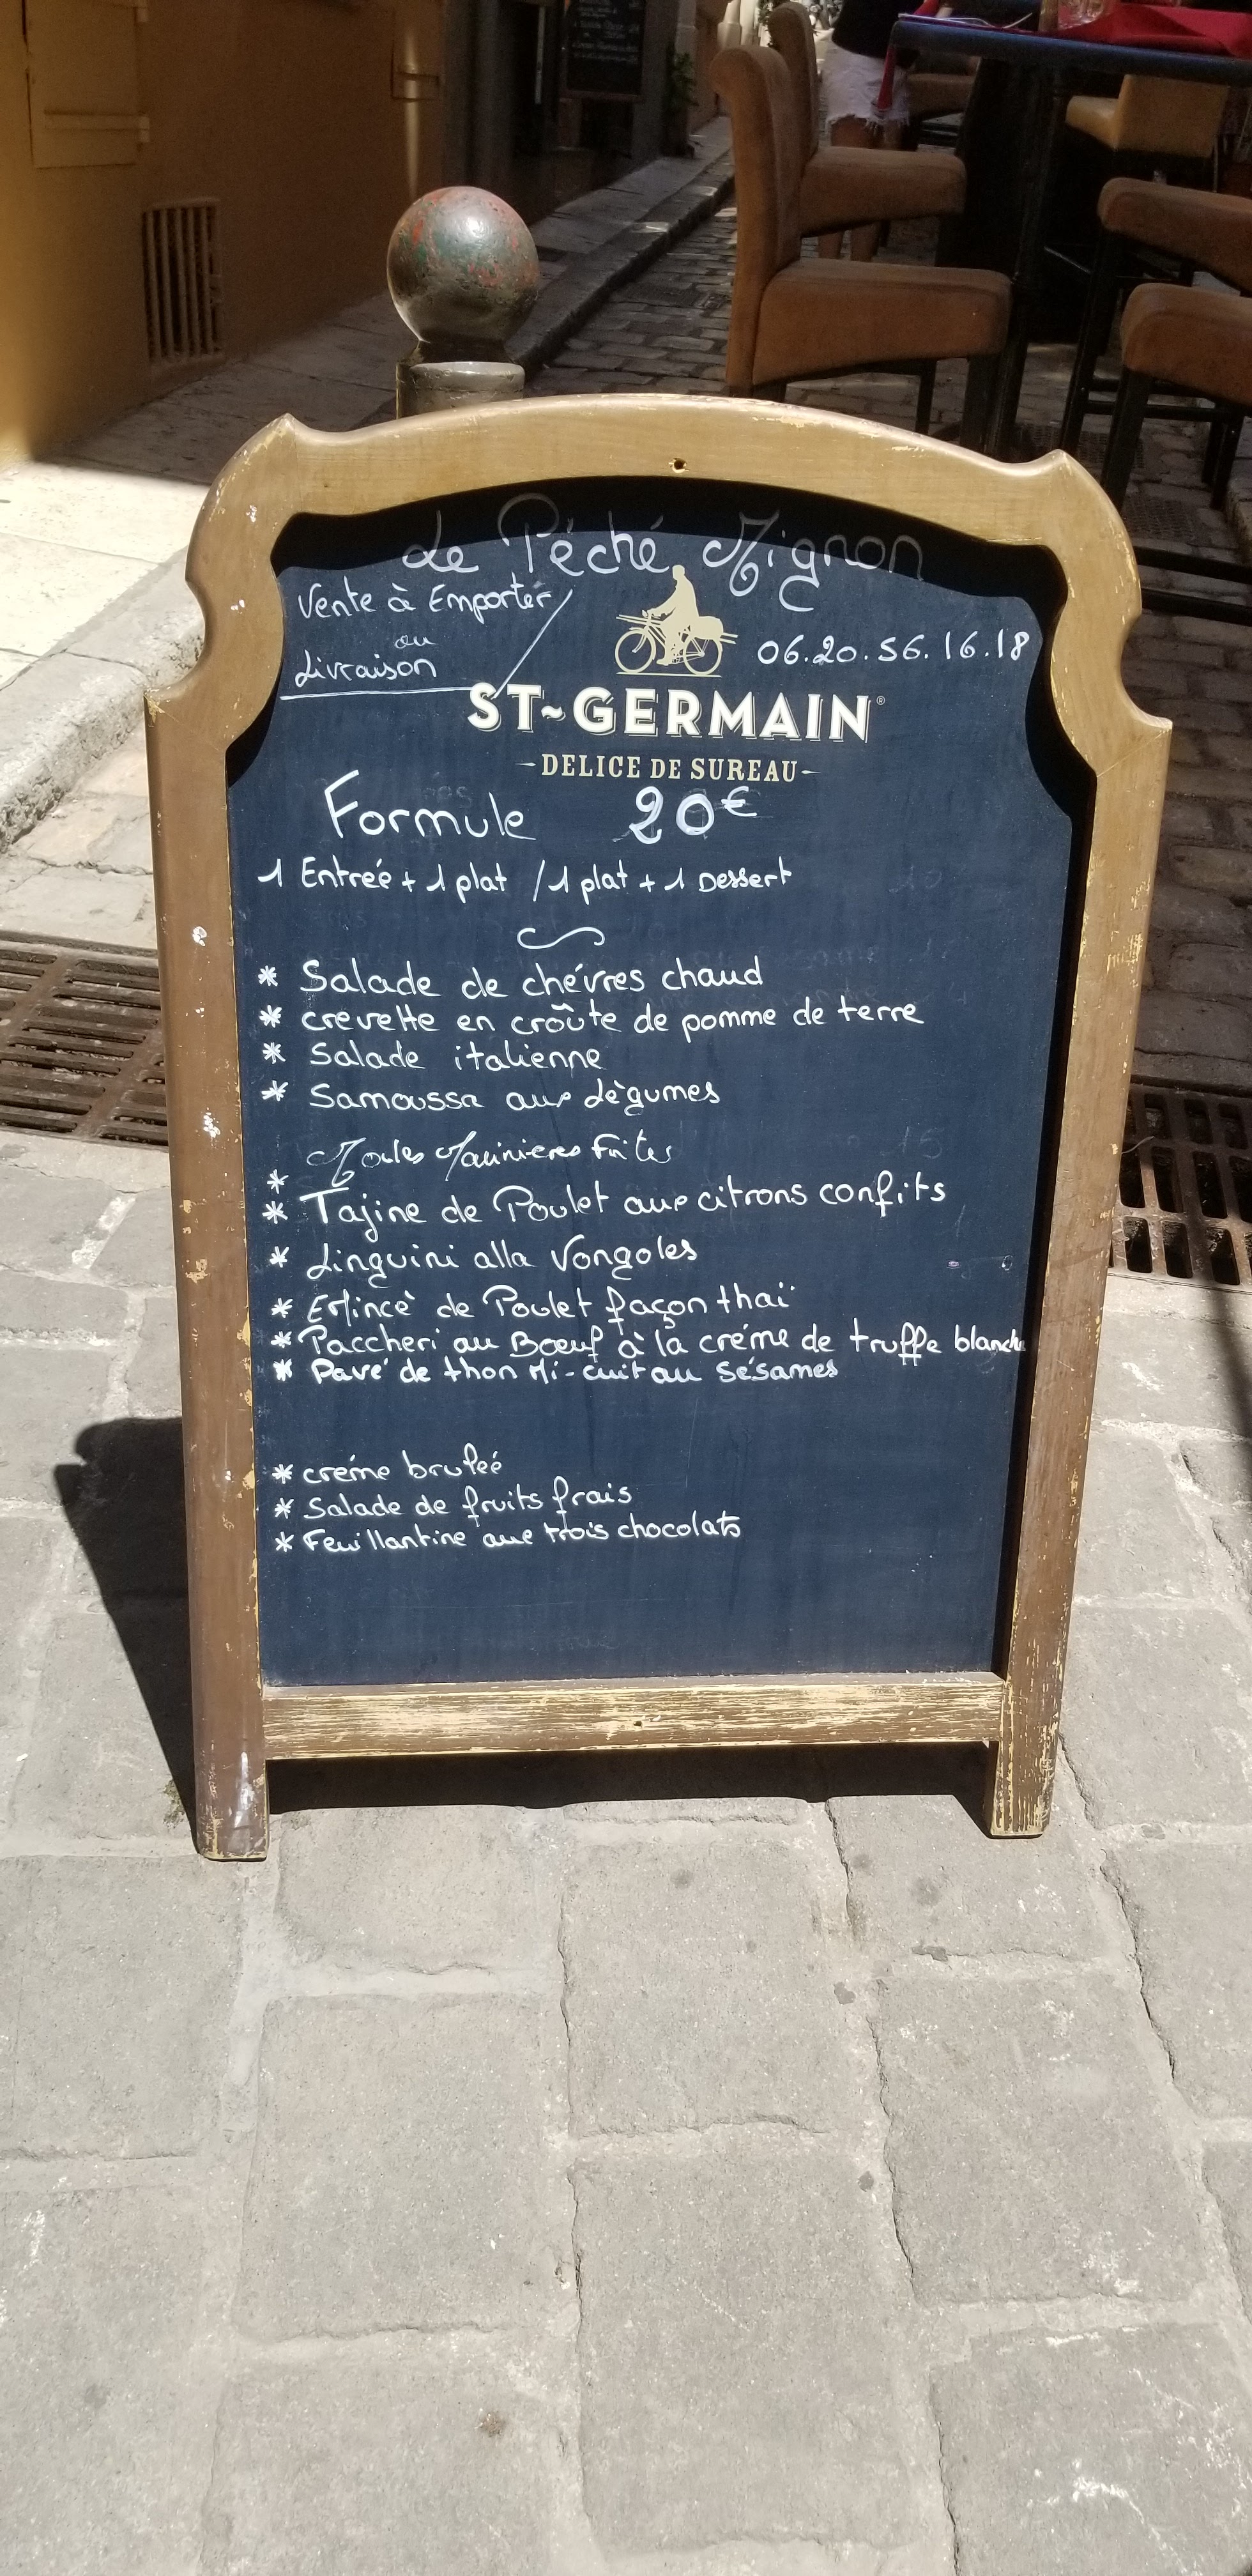 Le Péché Mignon
Vente à Emporter
ou
Livraison
06.20.56.16.18
ST~GERMAIN®
DELICE DE SUREAU
Formule 20€
1 Entreé + 1 plat / 1 plat + 1 Dessert
* Salade de chévres chaud
* crevette en croûte de pomme de terre
* Salade italienne
* Samoussa aux Lègumes
* Moules Marinieres Frites
* Tajine de Poulet aux citrons confits
* Linguini alla Vongoles
* Emincè de Poulet façon thaï
* Paccheri au Bœuf à la créme de truffe blanche
* Pavé de thon Mi-cuit au Sésames
* créme bruleé
* Salade de fruits frais
* Feuillantine aux trois chocolats